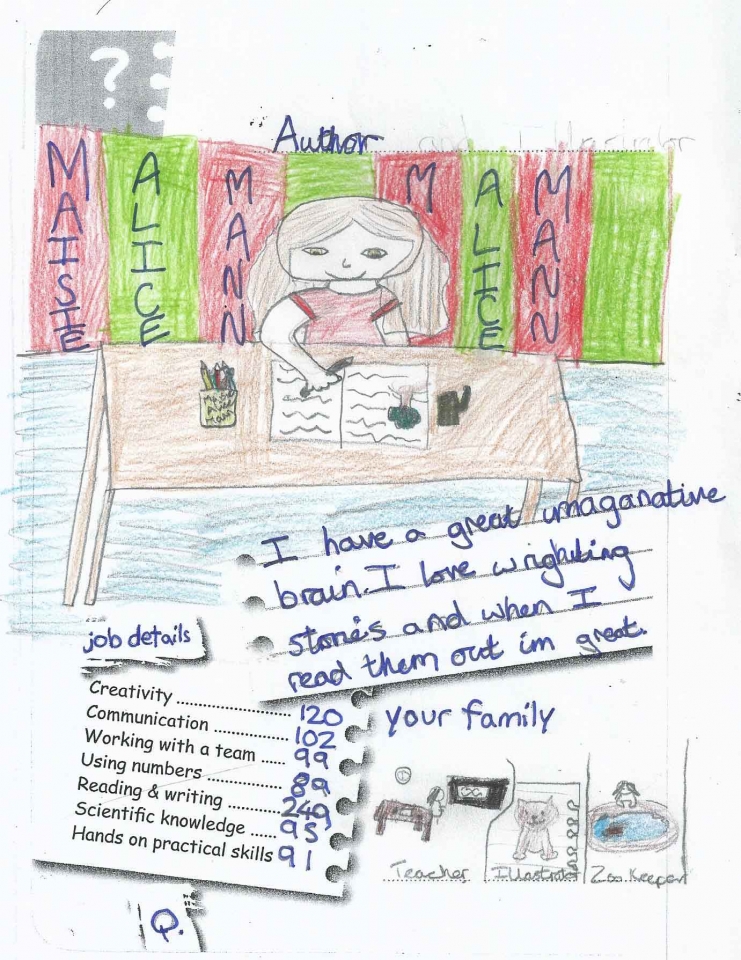 ?
Author and Illustrator
MAISIE ALICE MANN M ALICE MANN
I have a great umaganative
brain. I love wrighting
stories and when I
read them out im great.
job details
Creativity ........................ 120
Communication ................ 102
Working with a team ...... 99
Using numbers .................. 89
Reading & writing ............ 249
Scientific knowledge ...... 95
Hands on practical skills 91
your family
Teacher Illustrator Zoo Keeper
Q.